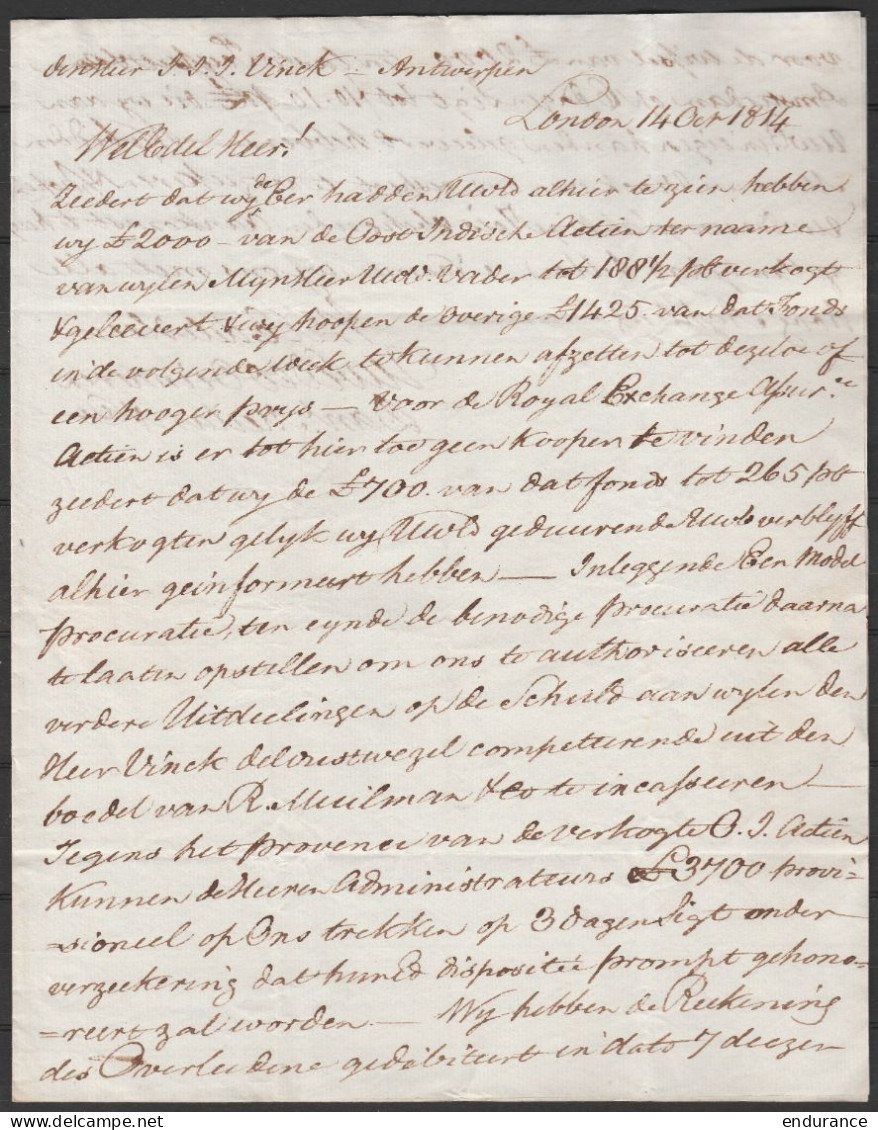 den Heer J. J. J. Vinck = Antwerpen
London 14 Oct 1814
WelEdel Heer!
Zeedert dat wy de Eer hadden UWEd alhier te zien hebben
wy £2000 - van de Oost Indische Actien ter naame
van wylen Myn Heer UwEd. Vader tot 188 1/2 pCt verkogt
& geleevert & wy hoopen de overige £1425. van dat Fonds
in de volgende week te kunnen afzetten tot dezelve of
een hooger prys — Voor de Royal Exchange Assur.ce
Actien is er tot hier toe geen kooper te vinden
zeedert dat wy de £700. van dat fonds tot 265 pCt
verkogten gelyk wy UWEd geduurende Uwe verblyff
alhier geinformeert hebben — Inleggende Een Model
Procuratie, ten eynde de benodige procuratie daarna
te laaten opstellen om ons te authoriseeren alle
verdere Uitdeelingen op de Schuld aan wylen den
Heer Vinck de Westwezel competterende uit den
boedel van R. Muilman & Co te incasseeren —
Tegens het Provenee van de verkogte O. I. Actien
kunnen de Heeren Administrateurs £3700 provi=
=sioneel op Ons trekken op 3 dagen Sigt onder
verzeekering dat hun Ed dispositie prompt gehono=
=reert zal worden — Wy hebben de Reekening
des Overleedene gedebiteert in dato 7 deezer
endurance